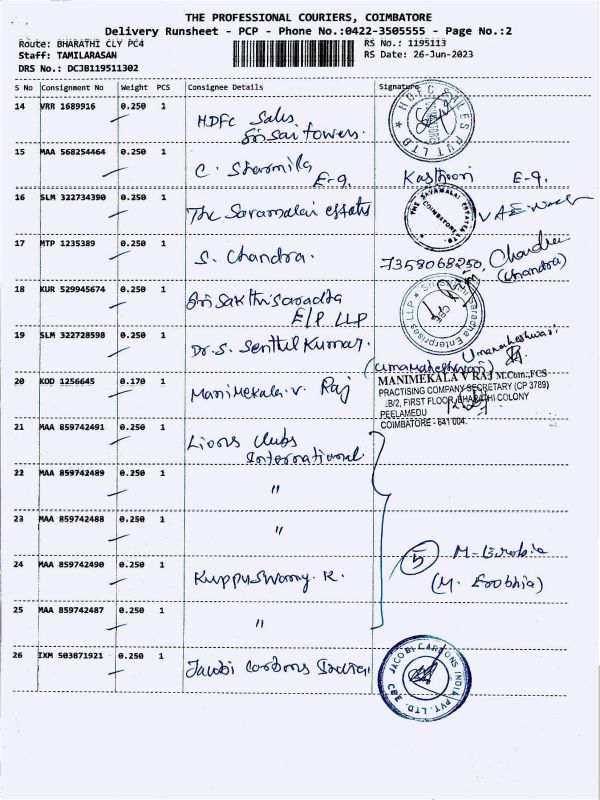 THE PROFESSIONAL COURIERS, COIMBATORE
Delivery Runsheet - PCP - Phone No.:0422-3505555 - Page No.:2
Route: BHARATHI CLY PC4
RS No.: 1195113
Staff: TAMILARASAN
RS Date: 26-Jun-2023
DRS No.: DCJB119511302
S No Consignment No Weight PCS Consignee Details Signature
14 VRR 1689916 0.250 1 HDFC Sales
Sri Sai towers.
HDFC SALES PVT LTD
15 MAA 568254464 0.250 1 C. Sharmila
E-9. Kasthoori E-9.
16 SLM 322734390 0.250 1 The Savamalai estates
THE SAVAMALAI ESTATES LTD. COIMBATORE
17 MTP 1235389 0.250 1 S. Chandra. 7358068250, Chandra
(Chandra)
18 KUR 529945674 0.250 1 Sri Sakthi Saradha
E/P LLP
Enterprises LLP
19 SLM 322728598 0.250 1 Dr. S. Senthil Kumar. Umamaheshwari
(Umamaheshwari)
20 KOD 1256645 0.170 1 Manimekala. V. Raj
MANIMEKALA V RAJ M.Com.,FCS
PRACTISING COMPANY SECRETARY (CP 3789)
B/2, FIRST FLOOR, BHARATHI COLONY
PEELAMEDU
COIMBATORE - 641 004.
21 MAA 859742491 0.250 1 Lions Clubs
International
22 MAA 859742489 0.250 1 "
23 MAA 859742488 0.250 1 "
24 MAA 859742490 0.250 1 Kuppuswamy. K.
5 M.
(M.
25 MAA 859742487 0.250 1 "
26 IXM 503871921 0.250 1 Jacobi Carbons India
JACOBI CARBONS INDIA PVT. LTD.